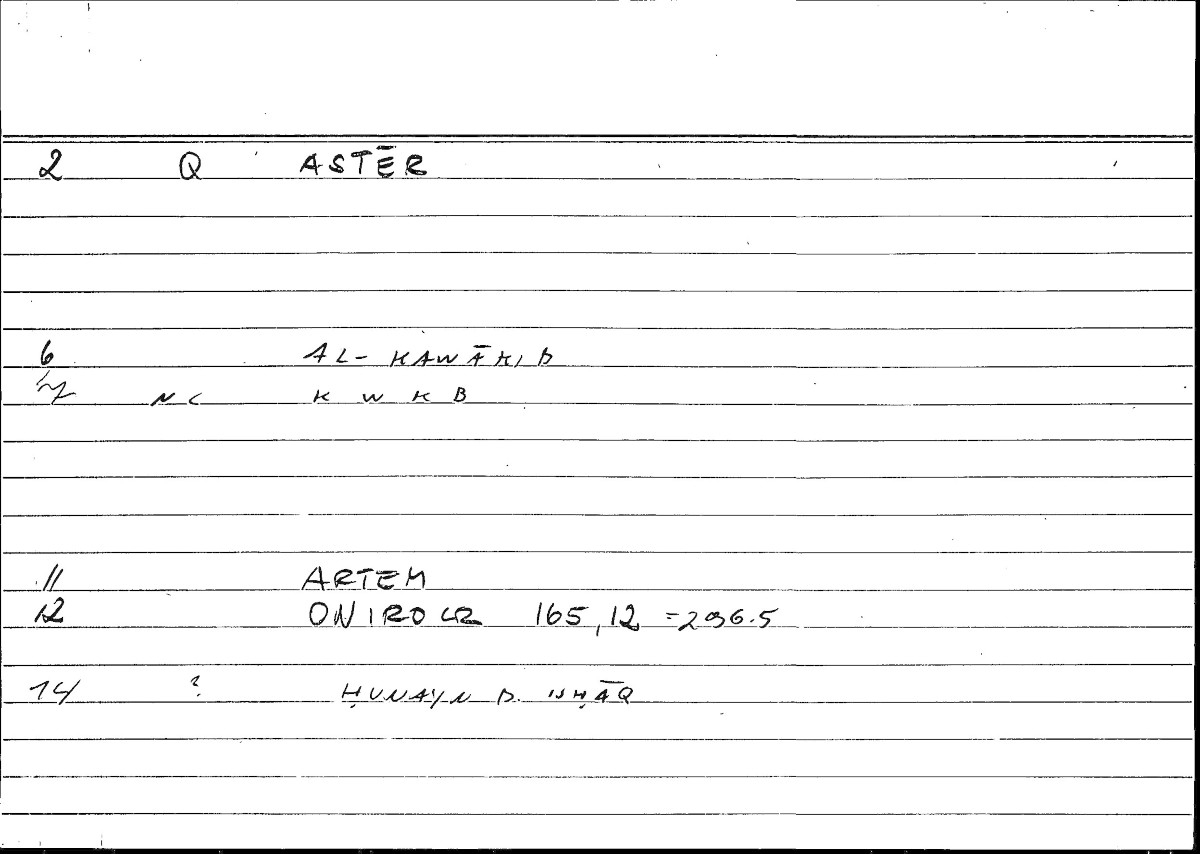 2 Q ASTĒR
6 AL-KAWĀKIB
7 NC KWKB
11 ARTEM
12 ONIROCR 165,12 =296.5
14 ? ḤUNAYN B. ISḤĀQ